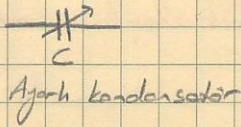 C
Ayarlı kondansatör